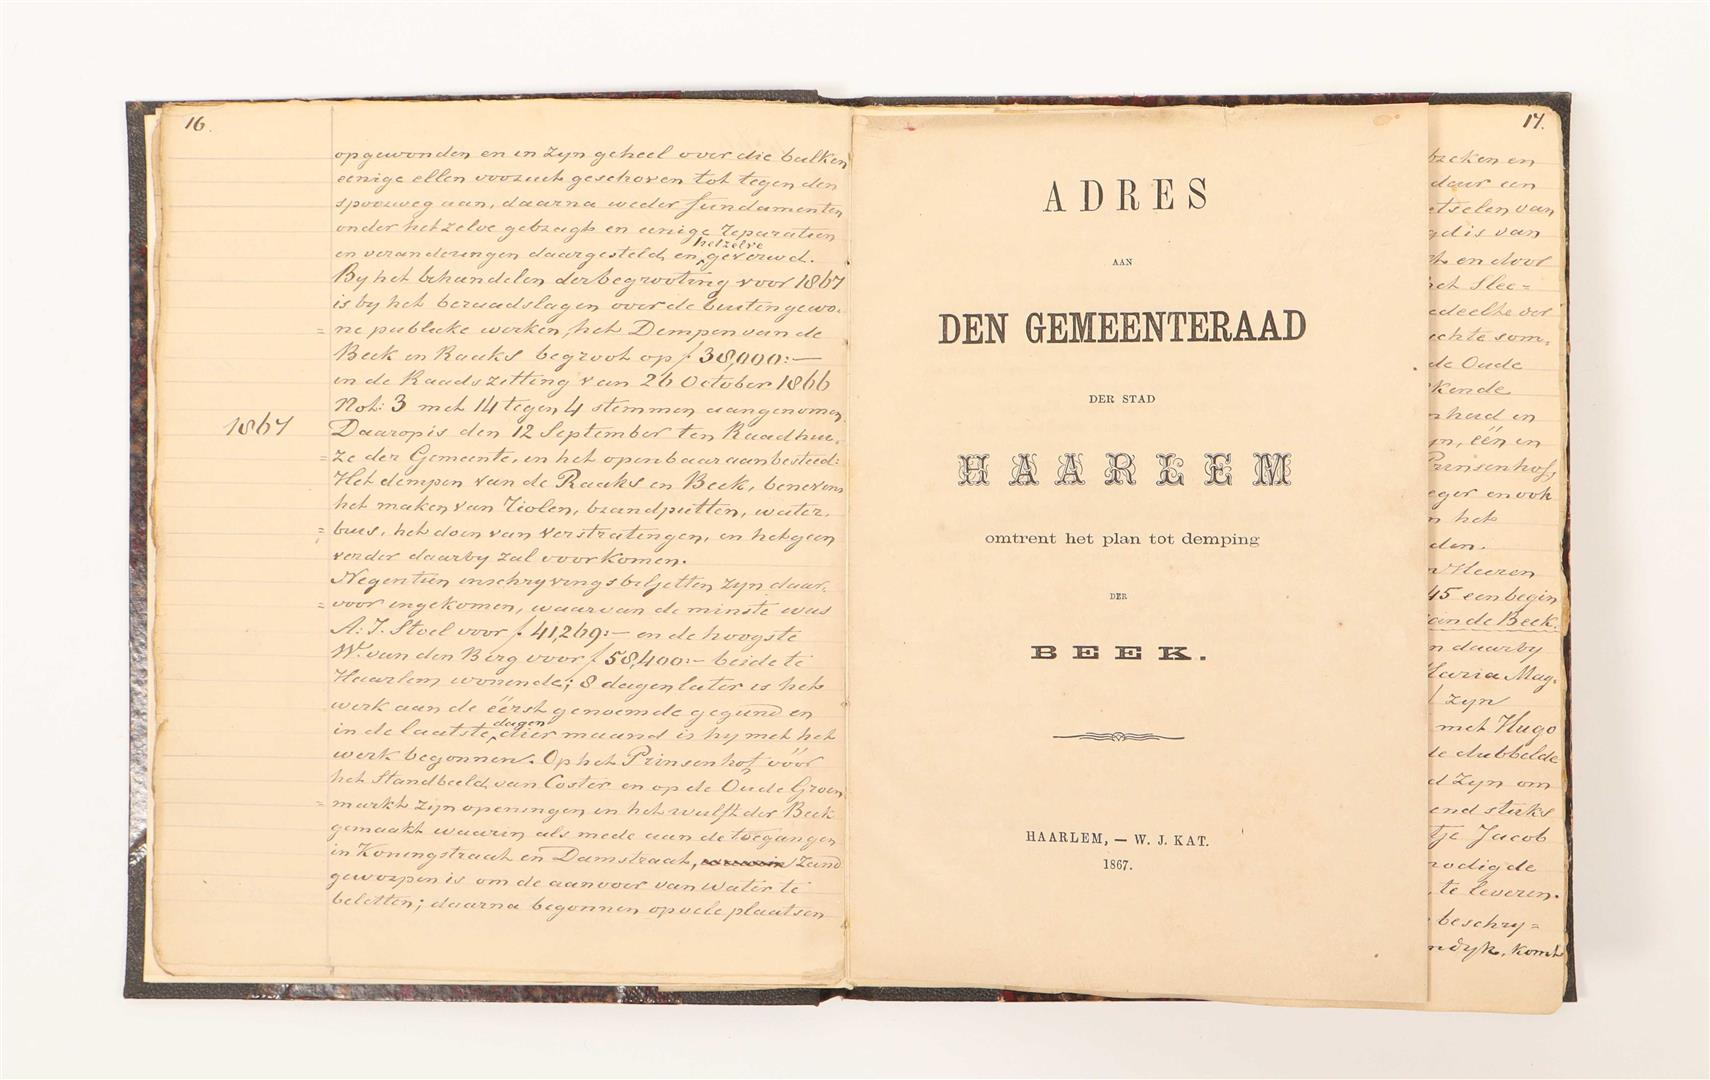 16.
opgewonden en in zyn geheel over die balken
eenige ellen vooruit geschoven tot tegen den
spoorweg aan, daarna weder fundamenten
onder hetzelve gebragt en eenige reparatien
en veranderingen daargesteld, en hetzelve geverwd.
By het behandelen der begrooting voor 1867
is by het beraadslagen over de buitengewo=
ne publieke werken, het Dempen van de
Beek en Raaks begroot op f 38,000:—
in de Raadszitting van 26 October 1866
Not: 3 met 14 tegen 4 stemmen aangenomen.
1867
Daarop is den 12 September ten Raadhui=
ze der Gemeente, in het openbaar aanbesteed:
Het dempen van de Raaks en Beek, benevens
het maken van riolen, brandputten, water=
buis, het doen van verstratingen, en hetgeen
verder daarby zal voorkomen.
Negentien inschryvingsbiljetten zyn daar=
voor ingekomen, waarvan de minste was
A: J. Stoel voor f 41,269:— en de hoogste
W. van den Berg voor f 58,400:— beide te
Haarlem wonende; 8 dagen later is het
werk aan de éérst genoemde gegund en
in de laatste dagen dier maand is hy met het
werk begonnen. Op het Prinsenhof, vóór
het Standbeeld van Coster en op de Oude Groen
markt zyn openingen in het wulft der Beek
gemaakt waarin als mede aan de toegangen
in Koningstraat en Damstraat, Zand
geworpen is om de aanvoer van water te
beletten; daarna begonnen op vele plaatsen
ADRES
AAN
DEN GEMEENTERAAD
DER STAD
HAARLEM
omtrent het plan tot demping
DER
BEEK.
HAARLEM, — W. J. KAT.
1867.
17.
en
door een
van
van
en door
het Slee=
som=
de Oude
en
één en
Prinsenhof,
en ook
het
den.
Heeren
45 een begin
van de Beek.
daarby
Maria Mag=
zyn
met Hugo
de dubbelde
zyn om
stuks
Jacob
nodig de
te leveren.
beschry=
dyk, komt